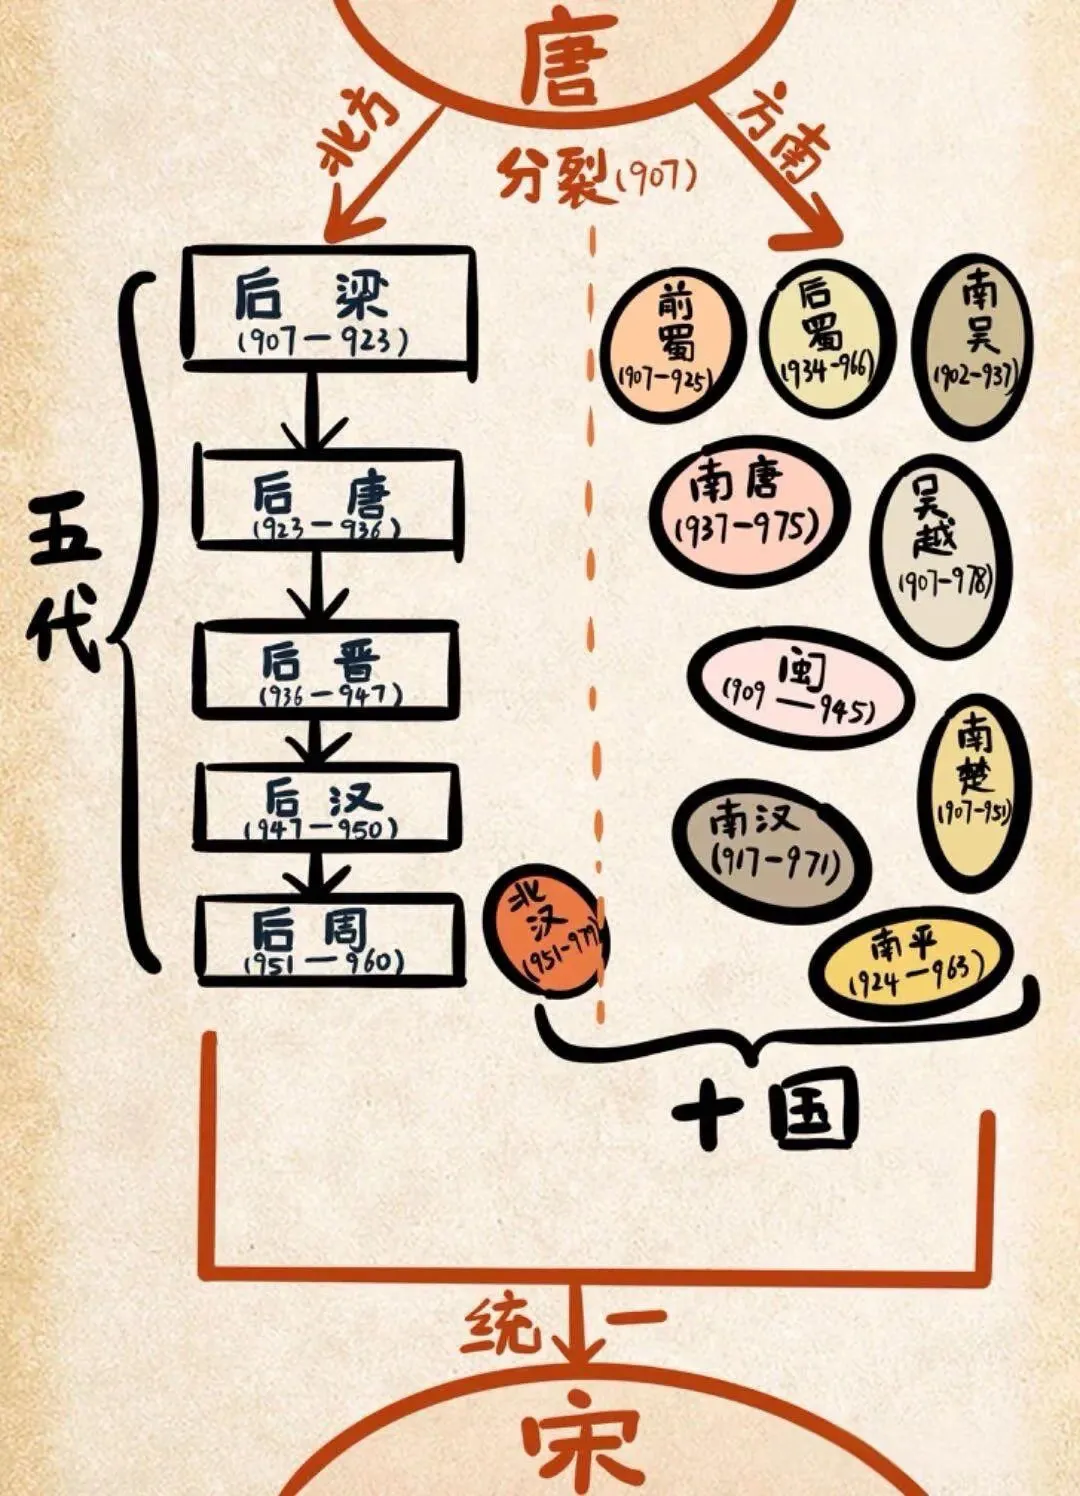 唐
北方
方南
分裂(907)
五代
后 梁
(907—923)
后 唐
(923—936)
后 晋
(936—947)
后 汉
(947—950)
后 周
(951—960)
前蜀
(907—925)
后蜀
(934-966)
南吴
(902-937)
南唐
(937-975)
吴越
(907-978)
闽
(909—945)
南楚
(907-951)
南汉
(917-971)
北汉
(951-979)
南平
(924—963)
十国
统一
宋